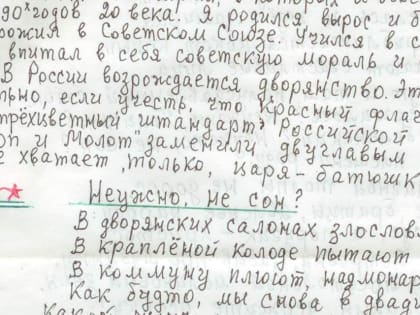 90х годов 20 века. Я родился, вырос и
в Советском Союзе. Учился в
впитал в себя советскую мораль и
В России возрождается дворянство.
если учесть, что Красный
трёхцветный штандарт Российской
и Молот" заменили двуглавым
хватает, только, царя-
Неужно, не сон?
В дворянских салонах
В краплёной колоде пытают
В коммуну плюют,
Как будто, мы снова в